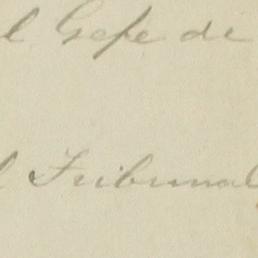 l Gefe de
l Tribunal